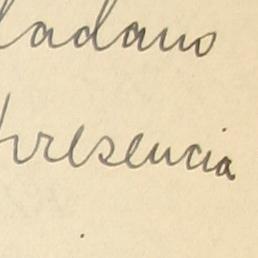 ladano
presencia